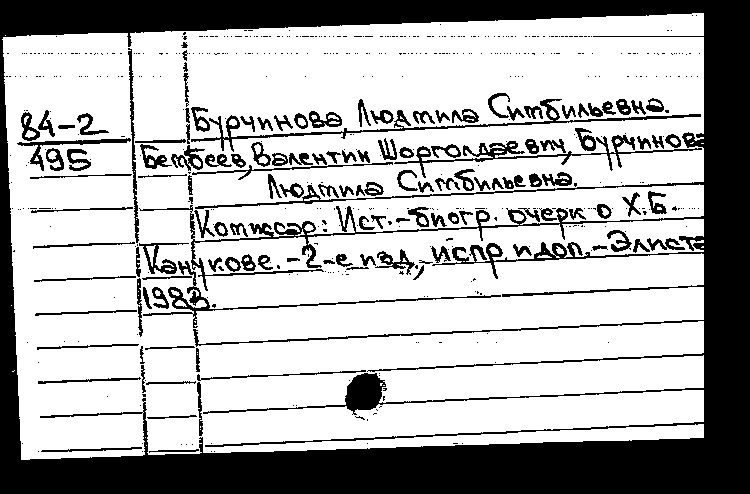 Бурчинова, Людмила Ситбильевна.
84-2
495
Бембеев, Валентин Шорголдаевич, Бурчинова
Людмила Ситбильевна.
Комиссар: Ист.-биогр. очерк о Х.Б.
Канукове. -2-е изд., испр. и доп. -Элиста
1983.